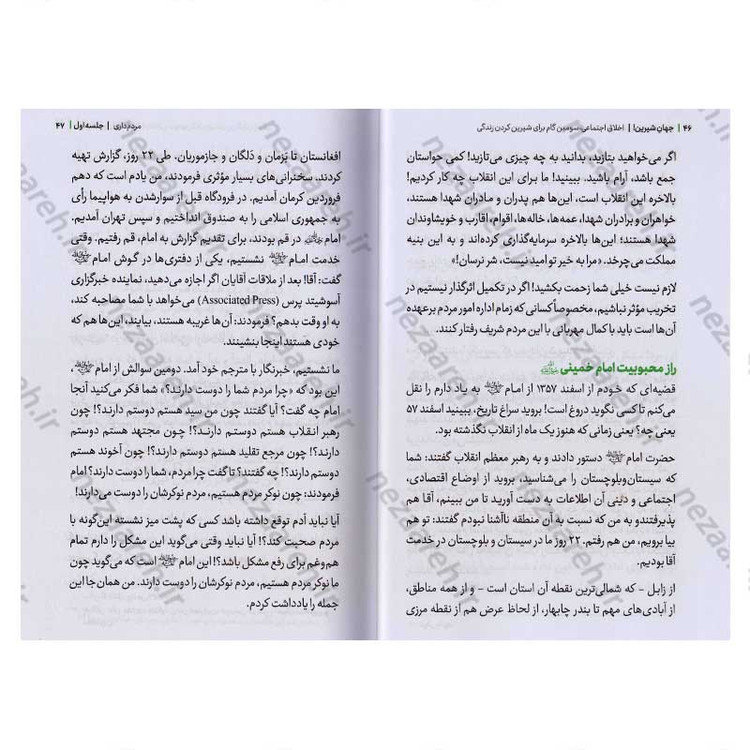 ۴۶ | جهانِ شیرین! | اخلاق اجتماعی، سومین گام برای شیرین کردن زندگی
اگر می‌خواهید بتازید، بدانید به چه چیزی می‌تازید! کمی حواستان
جمع باشد، آرام باشید. ببینید! ما برای این انقلاب چه کار کردیم!
بالاخره این انقلاب است، این‌ها هم پدران و مادران شهدا هستند،
خواهران و برادران شهدا، عمه‌ها، خاله‌ها، اقوام، اقارب و خویشاوندان
شهدا هستند؛ این‌ها بالاخره سرمایه‌گذاری کرده‌اند و به این بنیه
مملکت می‌چرخد. «مرا به خیر تو امید نیست، شر نرسان!»
لازم نیست خیلی شما زحمت بکشید! اگر در تکمیل اثرگذار نیستیم در
تخریب مؤثر نباشیم، مخصوصاً کسانی که زمام اداره امور مردم بر عهده
آن‌ها است باید با کمال مهربانی با این مردم شریف رفتار کنند.
راز محبوبیت امام خمینی
قضیه‌ای که خودم از اسفند ۱۳۵۷ از امام به یاد دارم را نقل
می‌کنم تا کسی نگوید دروغ است! بروید سراغ تاریخ، ببینید اسفند ۵۷
یعنی چه؟ یعنی زمانی که هنوز یک ماه از انقلاب نگذشته بود.
حضرت امام دستور دادند و به رهبر معظم انقلاب گفتند: شما
که سیستان‌وبلوچستان را می‌شناسید، بروید از اوضاع اقتصادی،
اجتماعی و دینی آن اطلاعات به دست آورید تا من ببینم، آقا هم
پذیرفتند و به من که نسبت به آن منطقه ناآشنا نبودم گفتند: تو هم
بیا برویم، من هم رفتم. ۲۲ روز ما در سیستان و بلوچستان در خدمت
آقا بودیم.
از زابل - که شمالی‌ترین نقطه آن استان است - و از همه مناطق،
از آبادی‌های مهم تا بندر چابهار، از لحاظ عرض هم از نقطه مرزی
مردم‌داری | جلسه اول | ۴۷
افغانستان تا بَزمان و دَلگان و جازموریان. طی ۲۲ روز، گزارش تهیه
کردند. سخنرانی‌های بسیار مؤثری فرمودند، من یادم است که دهم
فروردین کرمان آمدیم. در فرودگاه قبل از سوارشدن به هواپیما رأی
به جمهوری اسلامی را به صندوق انداختیم و سپس تهران آمدیم.
امام در قم بودند، برای تقدیم گزارش به امام، قم رفتیم. وقتی
خدمت امام نشستیم، یکی از دفتری‌ها در گوش امام
گفت: آقا! بعد از ملاقات آقایان اگر اجازه می‌دهید، نماینده خبرگزاری
آسوشیتد پرس (Associated Press) می‌خواهد با شما مصاحبه کند،
به او وقت بدهم؟ فرمودند: آن‌ها غریبه هستند، بیایند، این‌ها هم که
خودی هستند اینجا بنشینند.
ما نشستیم، خبرنگار با مترجم خود آمد. دومین سوالش از امام،
این بود که «چرا مردم شما را دوست دارند؟» شما فکر می‌کنید آنجا
امام چه گفت؟ آیا گفتند چون من سید هستم دوستم دارند؟! چون
رهبر انقلاب هستم دوستم دارند؟! چون مجتهد هستم دوستم
دارند؟! چون مرجع تقلید هستم دوستم دارند؟! چون آخوند هستم
دوستم دارند؟! چه گفتند؟ تا گفت چرا مردم، شما را دوست دارند؟ امام
فرمودند: چون نوکر مردم هستیم، مردم نوکرشان را دوست می‌دارند!
آیا نباید آدم توقع داشته باشد کسی که پشت میز نشسته این‌گونه با
مردم صحبت کند؟! آیا نباید وقتی می‌گوید این مشکل را دارم تمام
هم‌وغم برای رفع مشکل باشد؟! این امام است که می‌گوید چون
ما نوکر مردم هستیم، مردم نوکرشان را دوست دارند. من همان جا این
جمله را یادداشت کردم.
nezaareh.ir